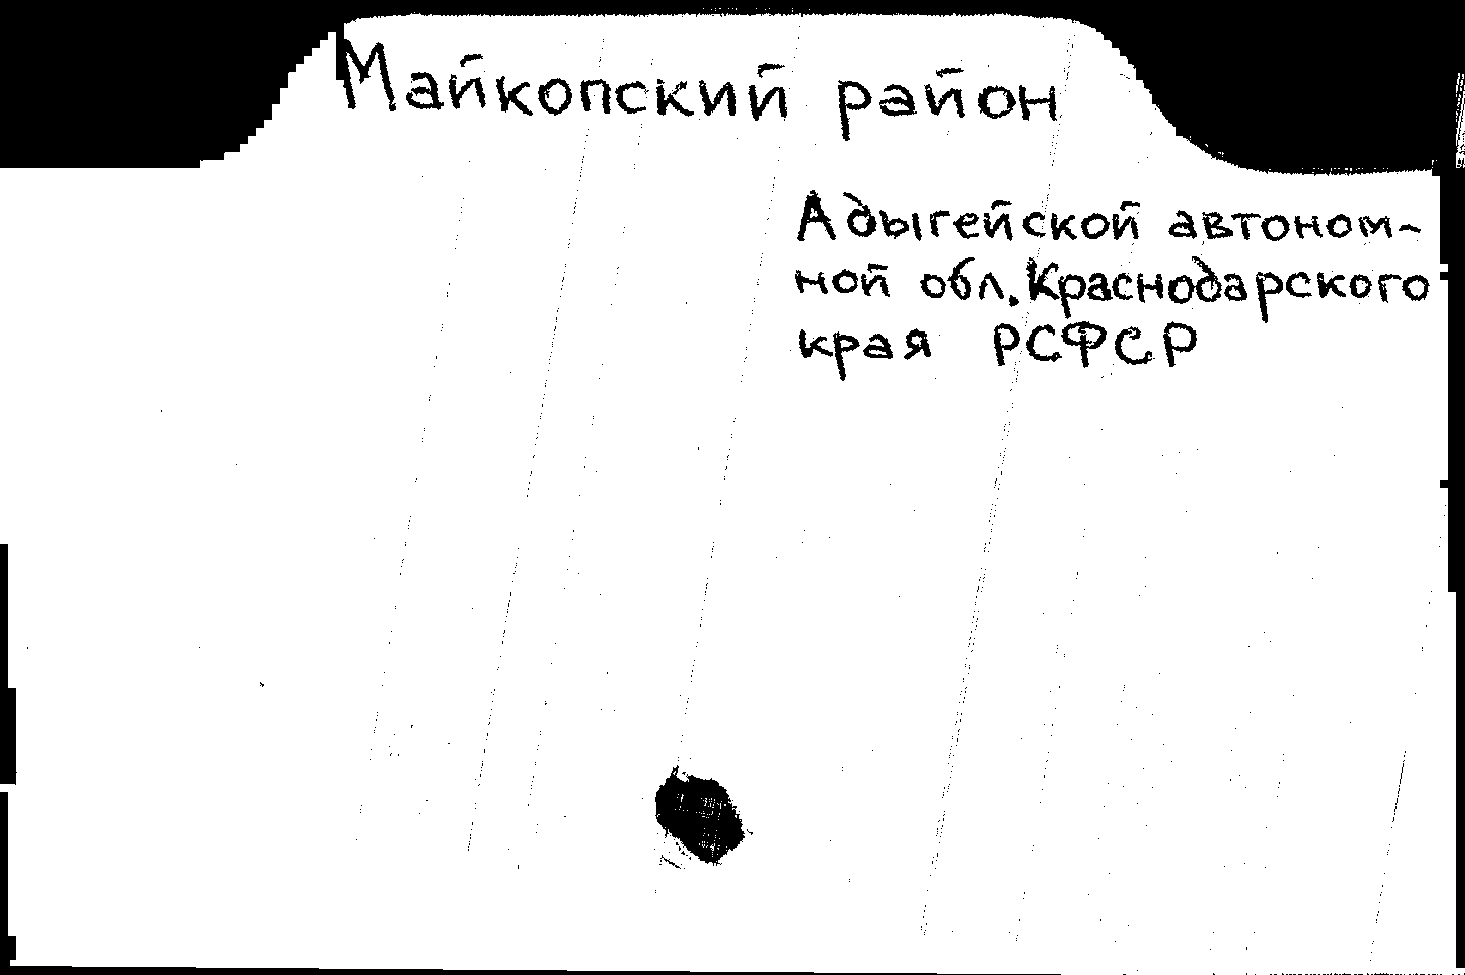 Майкопский район
Адыгейской автоном-
ной обл. Краснодарского
края РСФСР